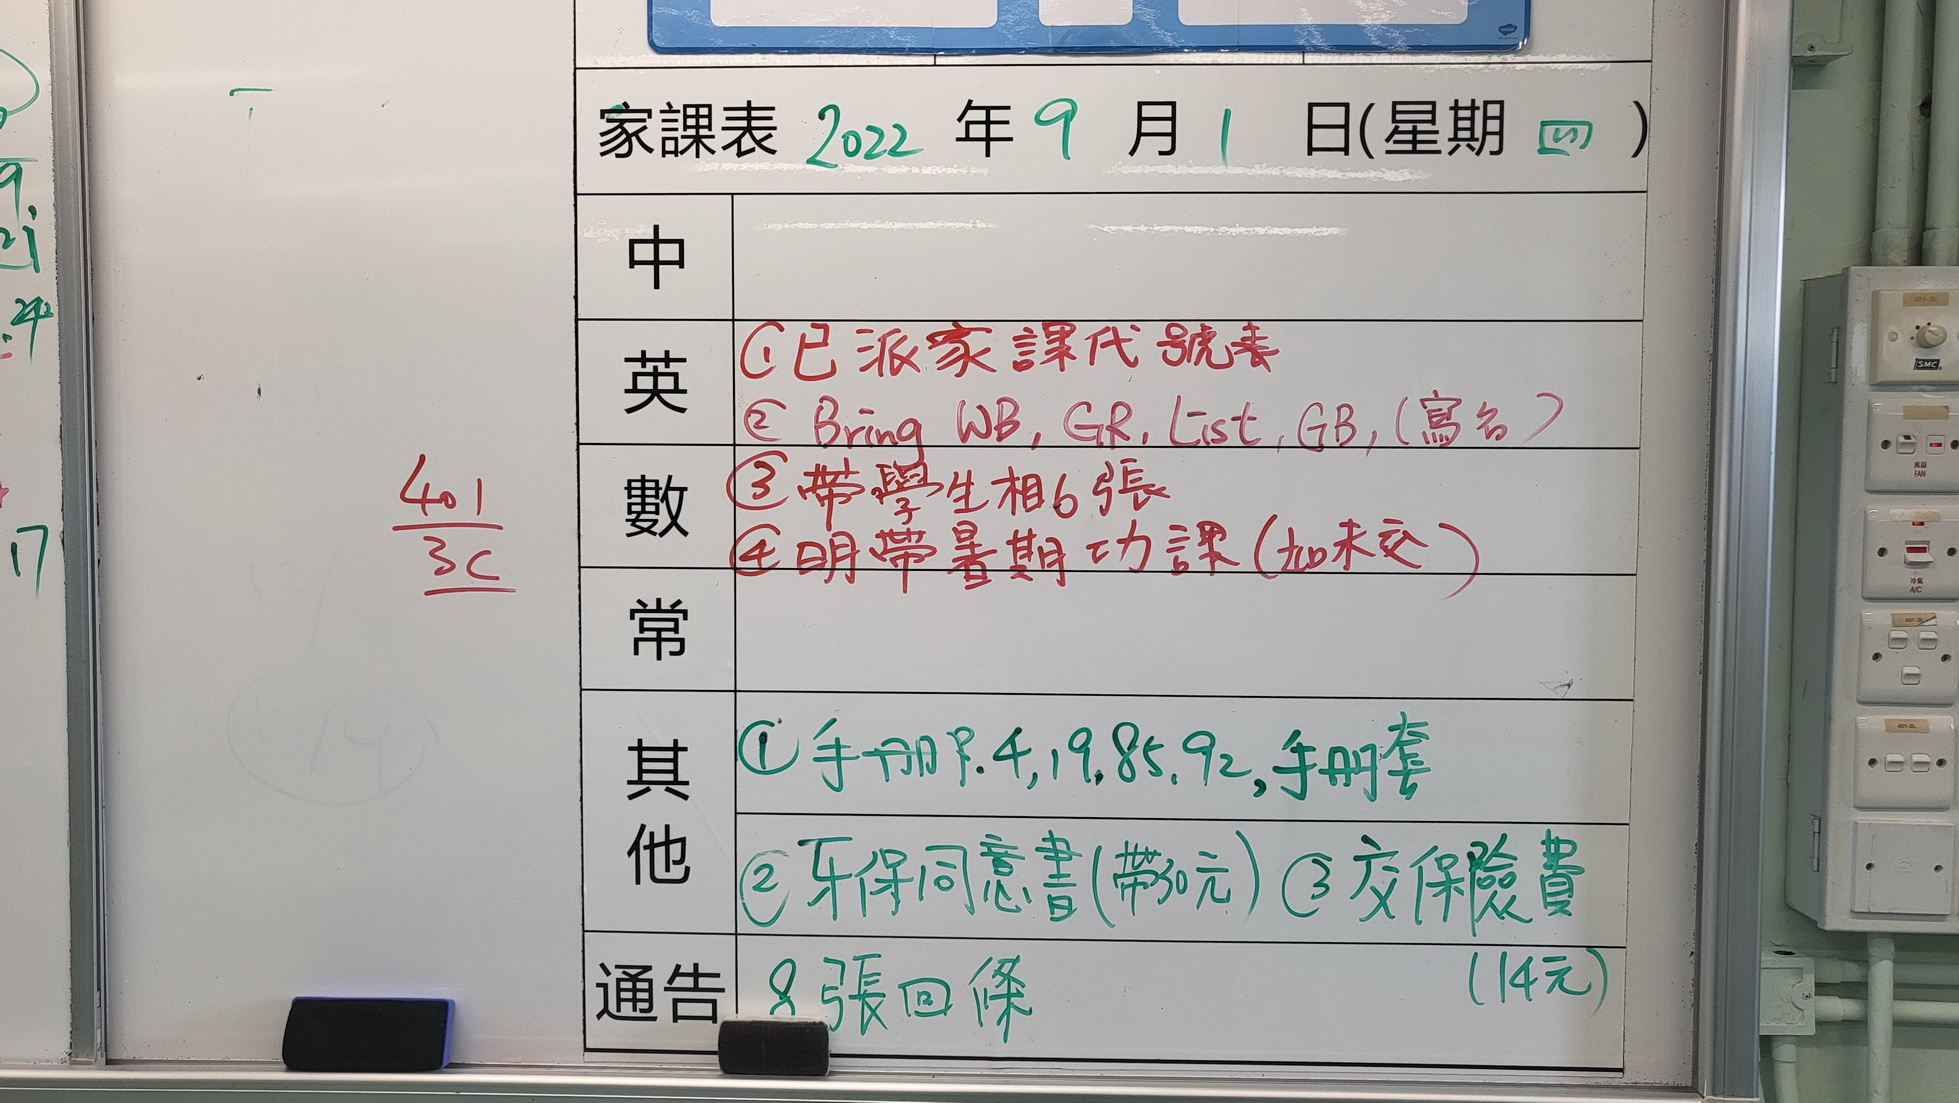 家課表 2022 年 9 月 1 日(星期 四 )
中
英
①已派家課代號表
② Bring WB, GR, List, GB, (寫名)
數
③帶學生相6張
④明帶暑期功課(如未交)
401
3C
常
其他
①手冊P.4,19,85,92,手冊套
②牙保同意書(帶30元) ③交保險費
(14元)
通告
8張回條
17
風扇
FAN
冷氣
A/C
SMC